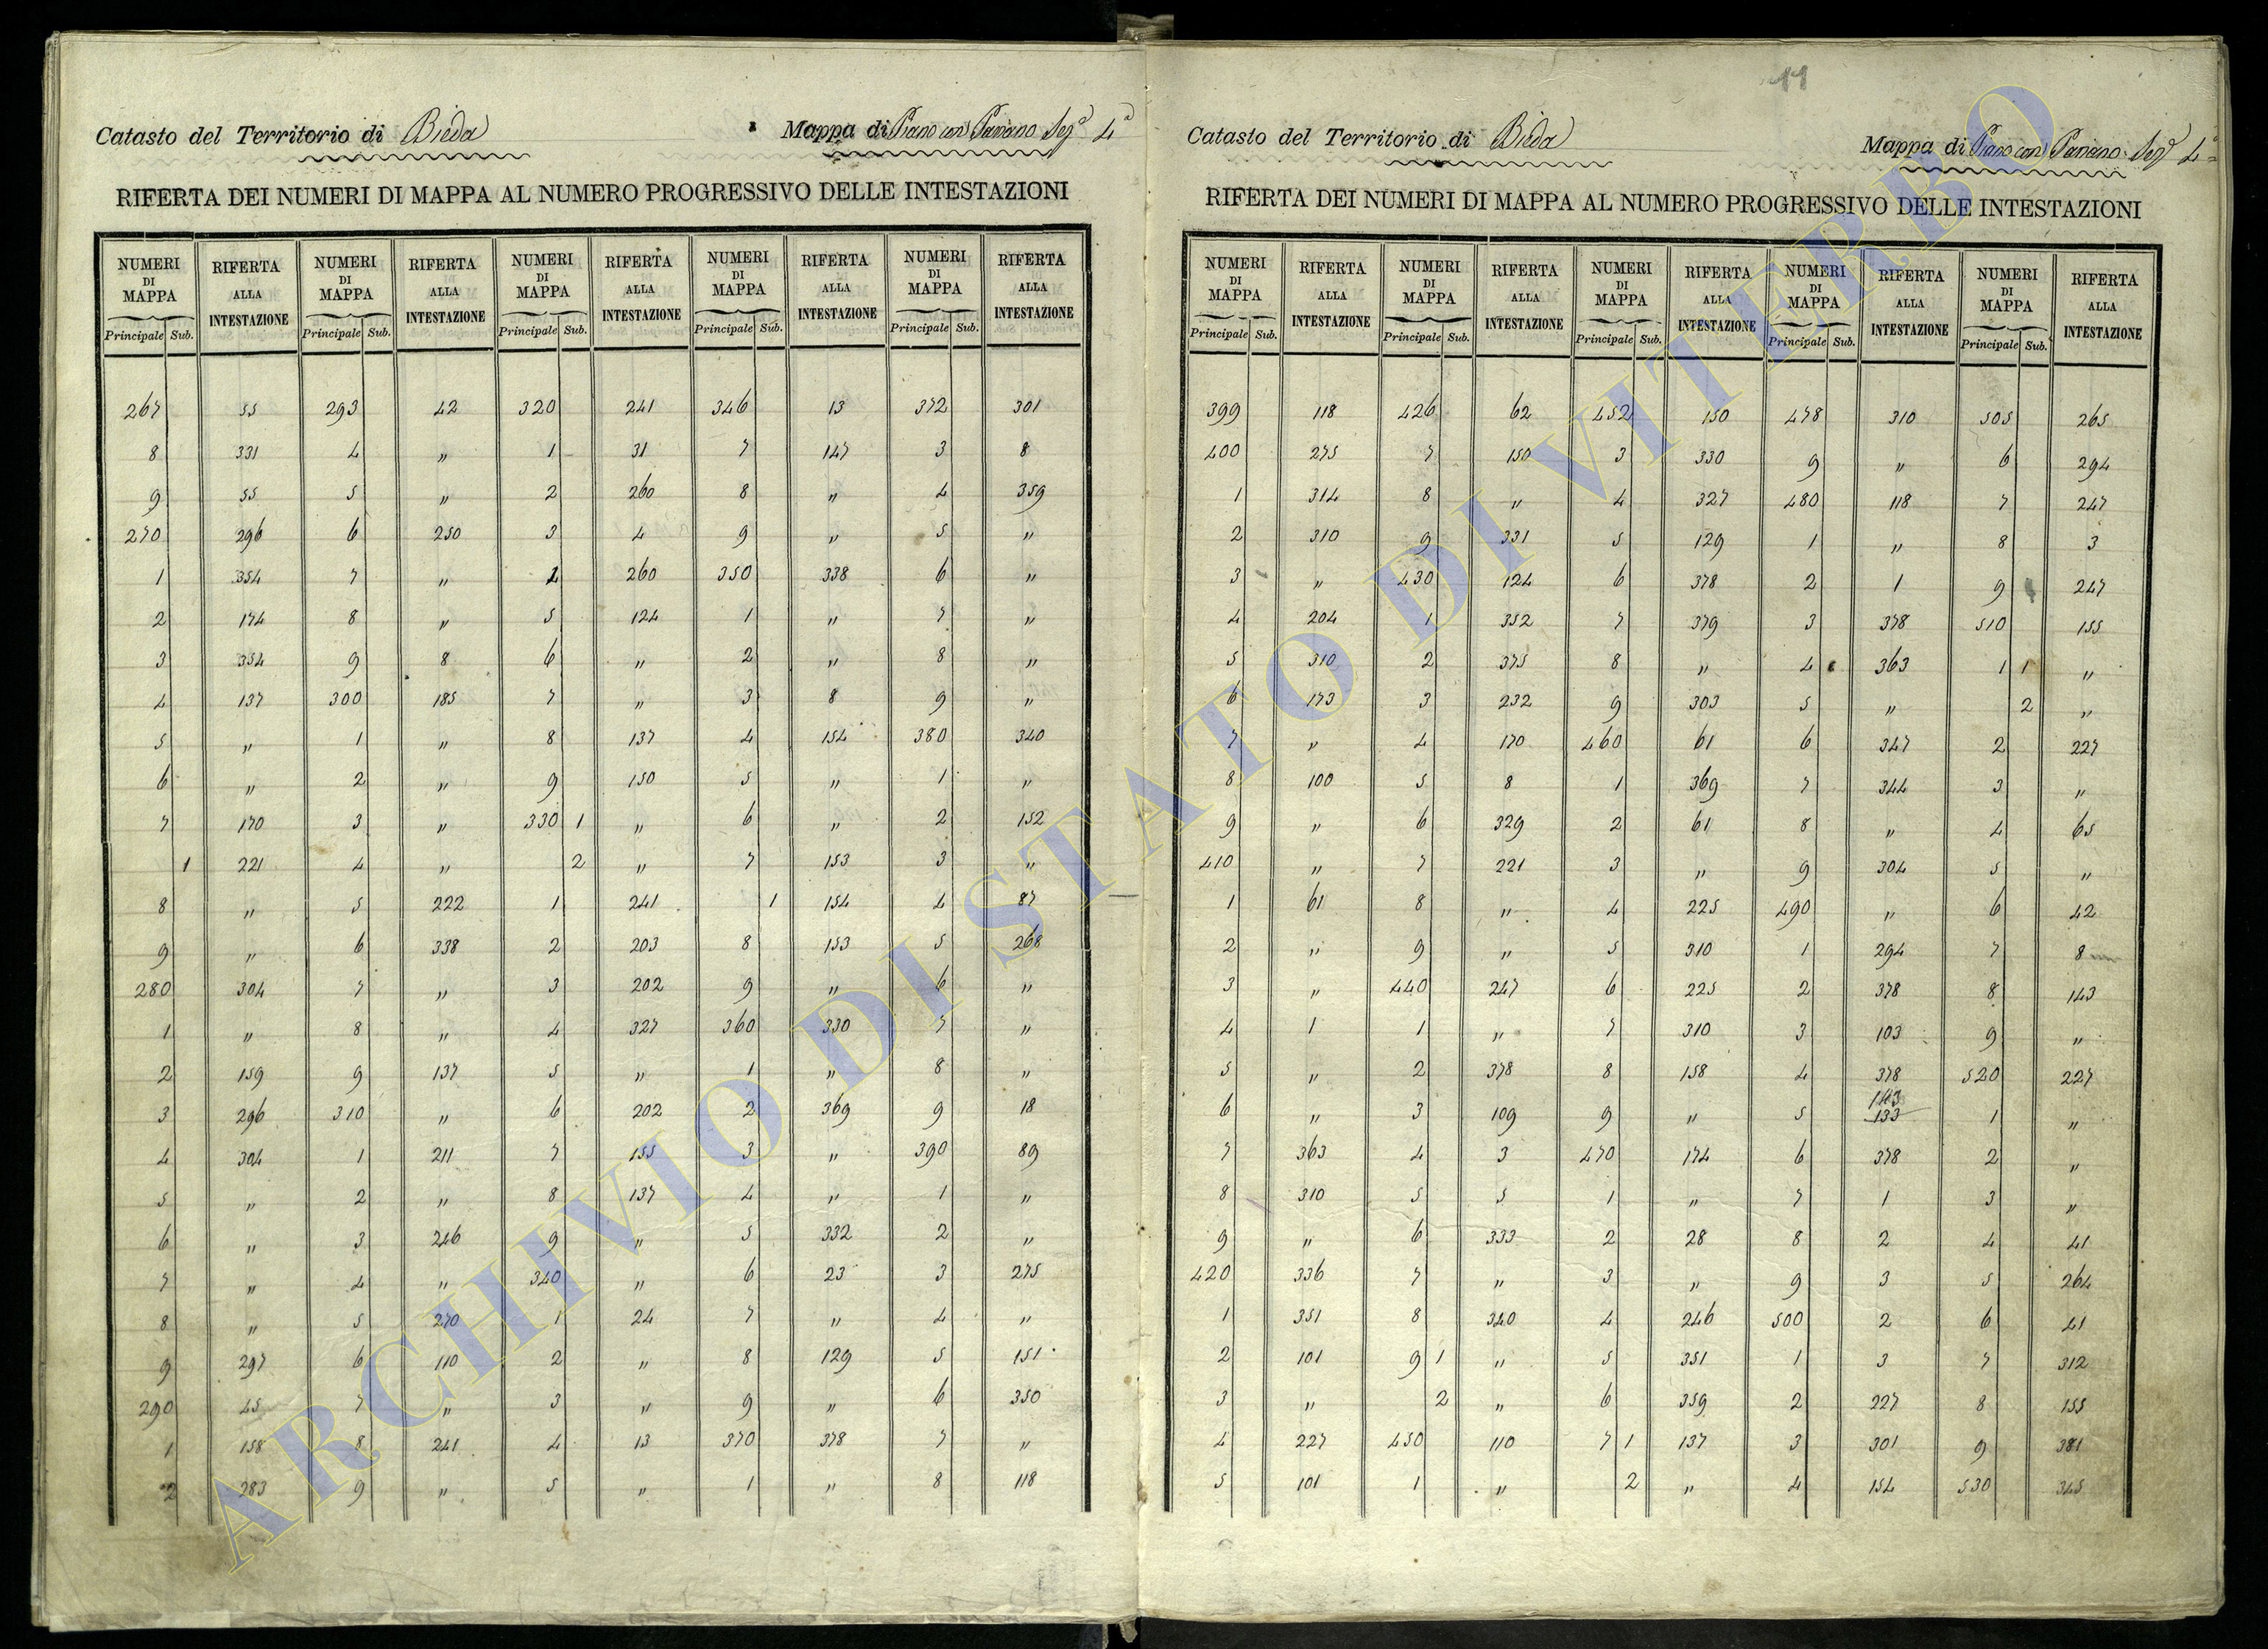 11
Catasto del Territorio di Bieda Mappa di Piano con Pariano Sez.ª 4ª
RIFERTA DEI NUMERI DI MAPPA AL NUMERO PROGRESSIVO DELLE INTESTAZIONI
NUMERI DI MAPPA RIFERTA ALLA INTESTAZIONE NUMERI DI MAPPA RIFERTA ALLA INTESTAZIONE NUMERI DI MAPPA RIFERTA ALLA INTESTAZIONE NUMERI DI MAPPA RIFERTA ALLA INTESTAZIONE NUMERI DI MAPPA RIFERTA ALLA INTESTAZIONE
Principale Sub. Principale Sub. Principale Sub. Principale Sub. Principale Sub.
267 55 293 42 320 241 346 13 372 301
8 331 4 " 1 31 7 147 3 8
9 55 5 " 2 260 8 " 4 359
270 296 6 250 3 4 9 " 5 "
1 354 7 " 4 260 350 338 6 "
2 174 8 " 5 124 1 " 7 "
3 354 9 8 6 " 2 " 8 "
4 137 300 185 7 " 3 8 9 "
5 " 1 " 8 137 4 154 380 340
6 " 2 " 9 150 5 " 1 "
7 170 3 " 330 1 " 6 " 2 152
1 221 4 " 2 " 7 153 3 "
8 " 5 222 1 241 1 154 4 87
9 " 6 338 2 203 8 153 5 268
280 304 7 " 3 202 9 " 6 "
1 " 8 " 4 327 360 330 7 "
2 159 9 137 5 " 1 " 8 "
3 296 310 " 6 202 2 369 9 18
4 304 1 211 7 155 3 " 390 89
5 " 2 " 8 137 4 " 1 "
6 " 3 246 9 " 5 332 2 "
7 " 4 " 340 " 6 23 3 275
8 " 5 270 1 24 7 " 4 "
9 297 6 110 2 " 8 129 5 151
290 45 7 " 3 " 9 " 6 350
1 158 8 241 4 13 370 378 7 "
2 283 9 " 5 " 1 " 8 118
Catasto del Territorio di Bieda Mappa di Piano con Pariano Sez.ª 4ª
RIFERTA DEI NUMERI DI MAPPA AL NUMERO PROGRESSIVO DELLE INTESTAZIONI
NUMERI DI MAPPA RIFERTA ALLA INTESTAZIONE NUMERI DI MAPPA RIFERTA ALLA INTESTAZIONE NUMERI DI MAPPA RIFERTA ALLA INTESTAZIONE NUMERI DI MAPPA RIFERTA ALLA INTESTAZIONE NUMERI DI MAPPA RIFERTA ALLA INTESTAZIONE
Principale Sub. Principale Sub. Principale Sub. Principale Sub. Principale Sub.
399 118 426 62 452 150 478 310 505 265
400 275 7 150 3 330 9 " 6 294
1 314 8 " 4 327 480 118 7 247
2 310 9 331 5 129 1 " 8 3
3 " 430 124 6 378 2 1 9 247
4 204 1 352 7 379 3 378 510 155
5 310 2 375 8 " 4 363 1 1 "
6 173 3 232 9 303 5 " 2 "
7 " 4 170 460 61 6 347 2 227
8 100 5 8 1 369 7 344 3 "
9 " 6 329 2 61 8 " 4 65
410 " 7 221 3 " 9 304 5 "
1 61 8 " 4 225 490 " 6 42
2 " 9 " 5 310 1 294 7 8
3 " 440 247 6 225 2 378 8 143
4 1 1 " 7 310 3 103 9 "
5 " 2 378 8 158 4 378 520 227
6 " 3 109 9 " 5 143 133 1 "
7 363 4 3 470 174 6 378 2 "
8 310 5 5 1 " 7 1 3 "
9 " 6 333 2 28 8 2 4 41
420 336 7 " 3 " 9 3 5 264
1 351 8 340 4 246 500 2 6 41
2 101 9 1 " 5 351 1 3 7 312
3 " 2 " 6 359 2 227 8 155
4 227 450 110 7 1 137 3 301 9 381
5 101 1 " 2 " 4 154 530 345
ARCHIVIO DI STATO DI VITERBO